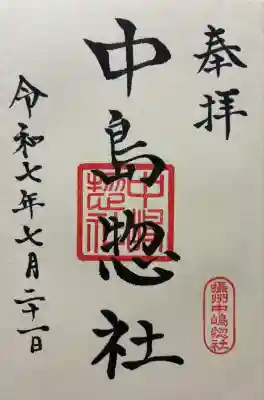 奉拝
中島惣社
中嶋惣社
攝州中嶋惣社
令和七年七月二十一日